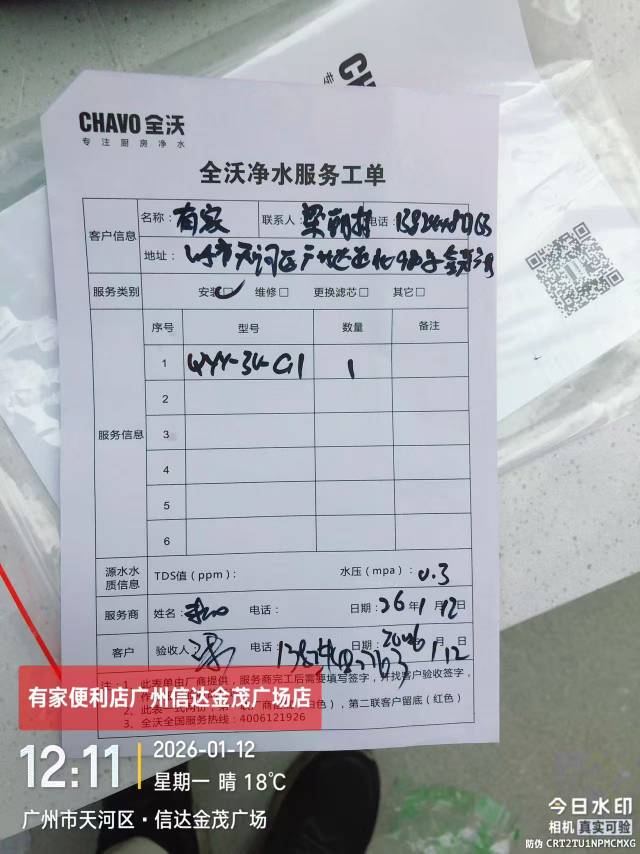 CHAVO 全沃
专注厨房净水
CHAVO
全沃净水服务工单
客户信息
名称： 有家 联系人： 电话：
地址：
服务类别 安装☑ 维修□ 更换滤芯□ 其它□
服务信息
序号 型号 数量 备注
1 1
2
3
4
5
6
源水水质信息 TDS值（ppm）： 水压（mpa）： 0.3
服务商 姓名： 电话： 日期： 26年1月12日
客户 验收人： 电话： 日期： 2026年1月12日
注：1、此表单由厂商提供，服务商完工后需要填写签字，并找客户验收签字，
第二联客户留底（红色）
3、全沃全国服务热线：4006121926
有家便利店广州信达金茂广场店
12:11
2026-01-12
星期一 晴 18℃
广州市天河区·信达金茂广场
今日水印
相机 真实可验
防伪 CRT2TU1NPMCMXG